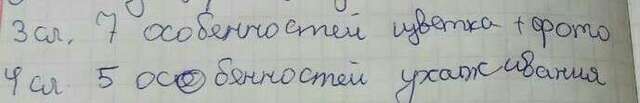 3 сл. 7 особенностей цветка + фото
4 сл. 5 особенностей ухаживания